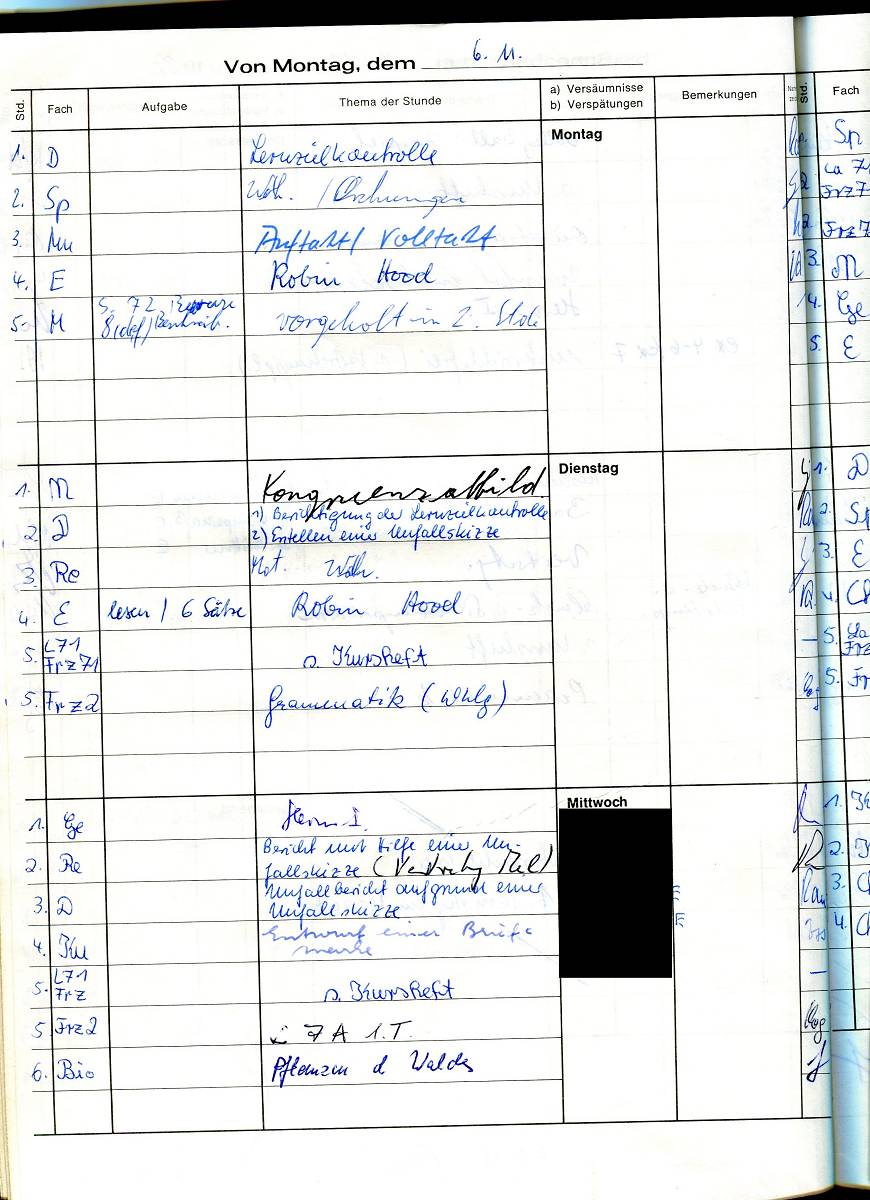 Von Montag, dem 6. 11.
Std. Fach Aufgabe Thema der Stunde a) Versäumnisse b) Verspätungen Bemerkungen Std. Fach
Montag
1. D Lernzielkontrolle Sp
2. Sp Wdh. / Frz 7
3. Mu Auftakt / Volltakt Frz 7
4. E Robin Hood 3. M
5. M S. 72 vorgeholt in 2. Stde 4. Ge
8 (def) 5. E
Dienstag
1. M Kongruenzabbild 1. D
2. D 1) Berichtigung der Lernzielkontrolle 2. Sp
2) Erstellen einer Unfallskizze
3. Re Wdh. 3. E
4. E lesen / 6 Sätze Robin Hood 4. Ch
5. L71 5. La
Frz 71 s. Kursheft Frz
5. Frz2 Grammatik (Whlg) 5. Fr
Mittwoch
1. Ge 1.
2. Re Bericht mit Hilfe einer Un- 2.
fallskizze (Vertretg
3. D Unfallbericht aufgrund einer 3. Ch
Unfallskizze
4. Ku Entwurf einer Brief- 4. Ch
marke
5. L71
Frz s. Kursheft
5 Frz2 7A 1.T.
6. Bio Pflanzen d Waldes